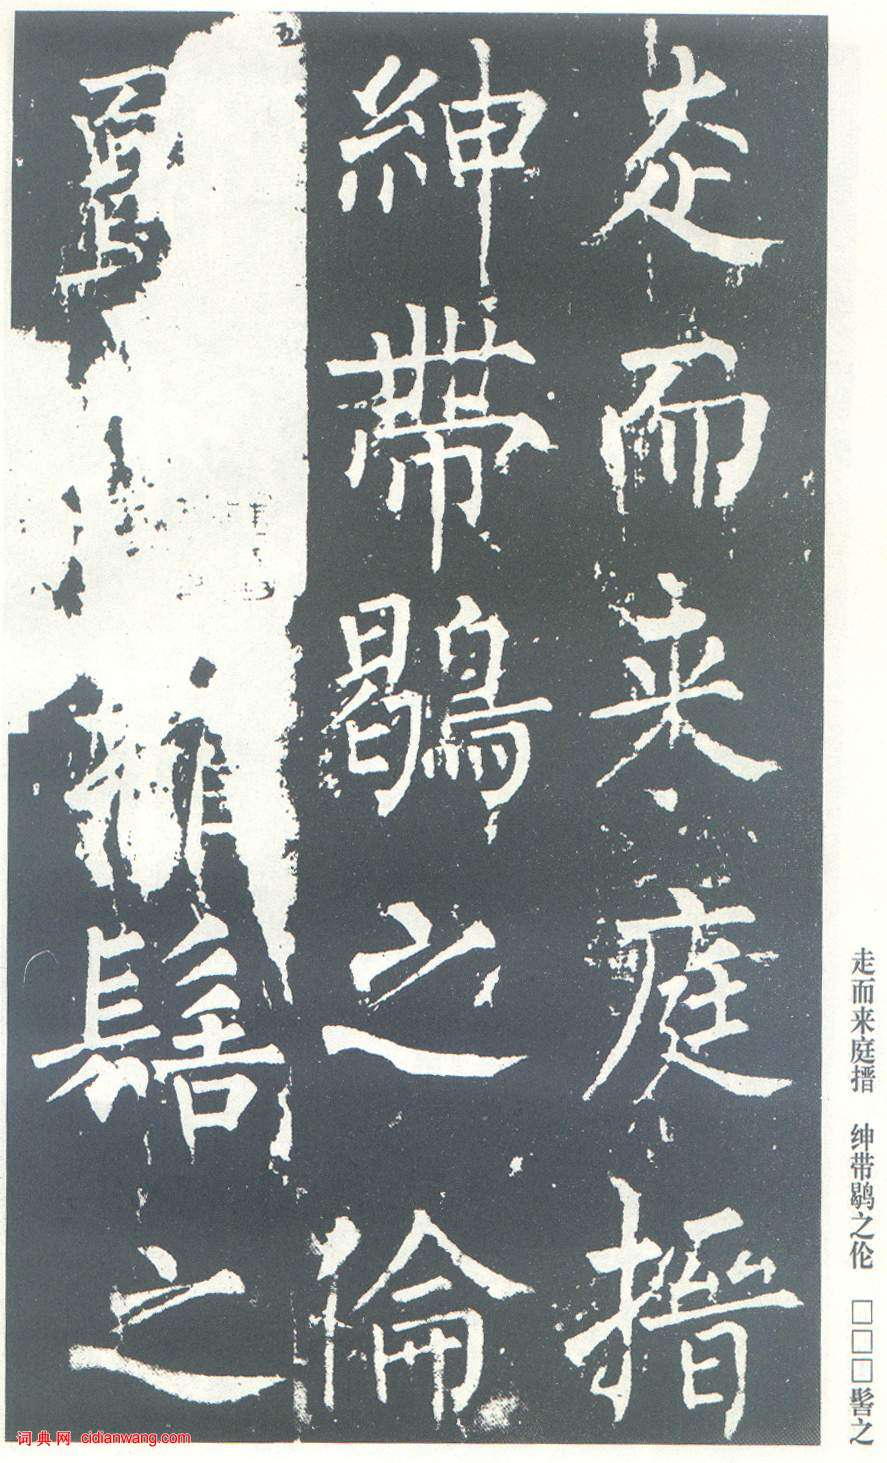 走而来庭搢
紳帶鶡之倫
髻之
走而来庭搢 绅带鹖之伦 □□□髻之
五
词典网 cidianwang.com